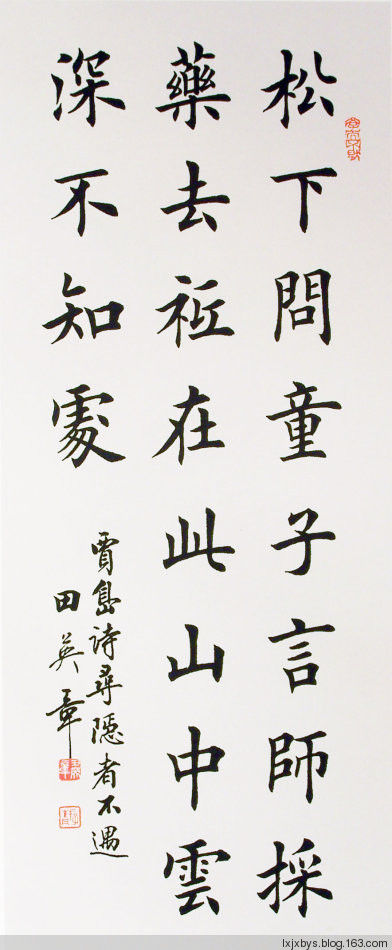 松下問童子言師採
藥去祇在此山中雲
深不知處
賈島詩尋隱者不遇
田英章
lxjxbys.blog.163.com